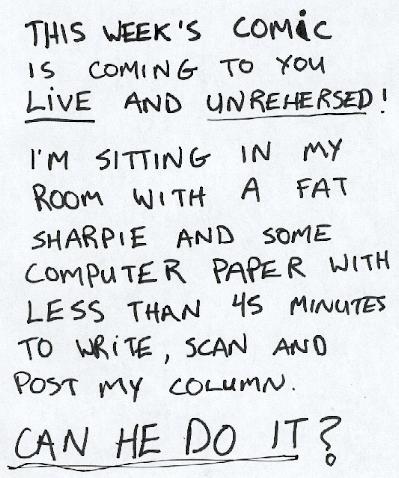 THIS WEEK'S COMiC
IS COMING TO YOU
LiVE AND UNREHERSED!
I'M SITTING IN MY
ROOM WITH A FAT
SHARPIE AND SOME
COMPUTER PAPER WITH
LESS THAN 45 MINUTES
TO WRiTE, SCAN AND
POST MY COLUMN.
CAN HE DO IT?